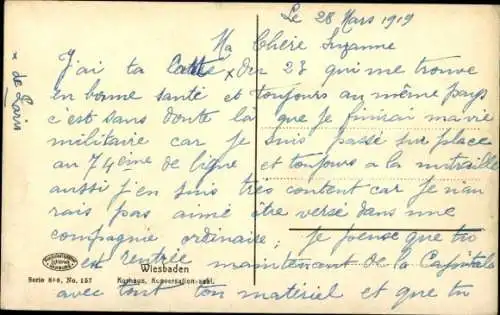 Le 28 Mars 1919
Ma Chère Suzanne
J'ai ta lettre x du 23 qui me trouve
x de Paris
en bonne santé et toujours au même pays
c'est sans doute là que je finirai ma vie
militaire car je suis passé sur place
au 74eme de ligne et toujours a la mitraille
aussi j'en suis très content car je n'au
rais pas aimé être versé dans une
compagnie ordinaire, je pense que tu
es rentrée maintenant de la Capitale
avec tout ton matériel et que tu
Wiesbaden
Serie 6, No. 157
Kurhaus, Konversation-saal.